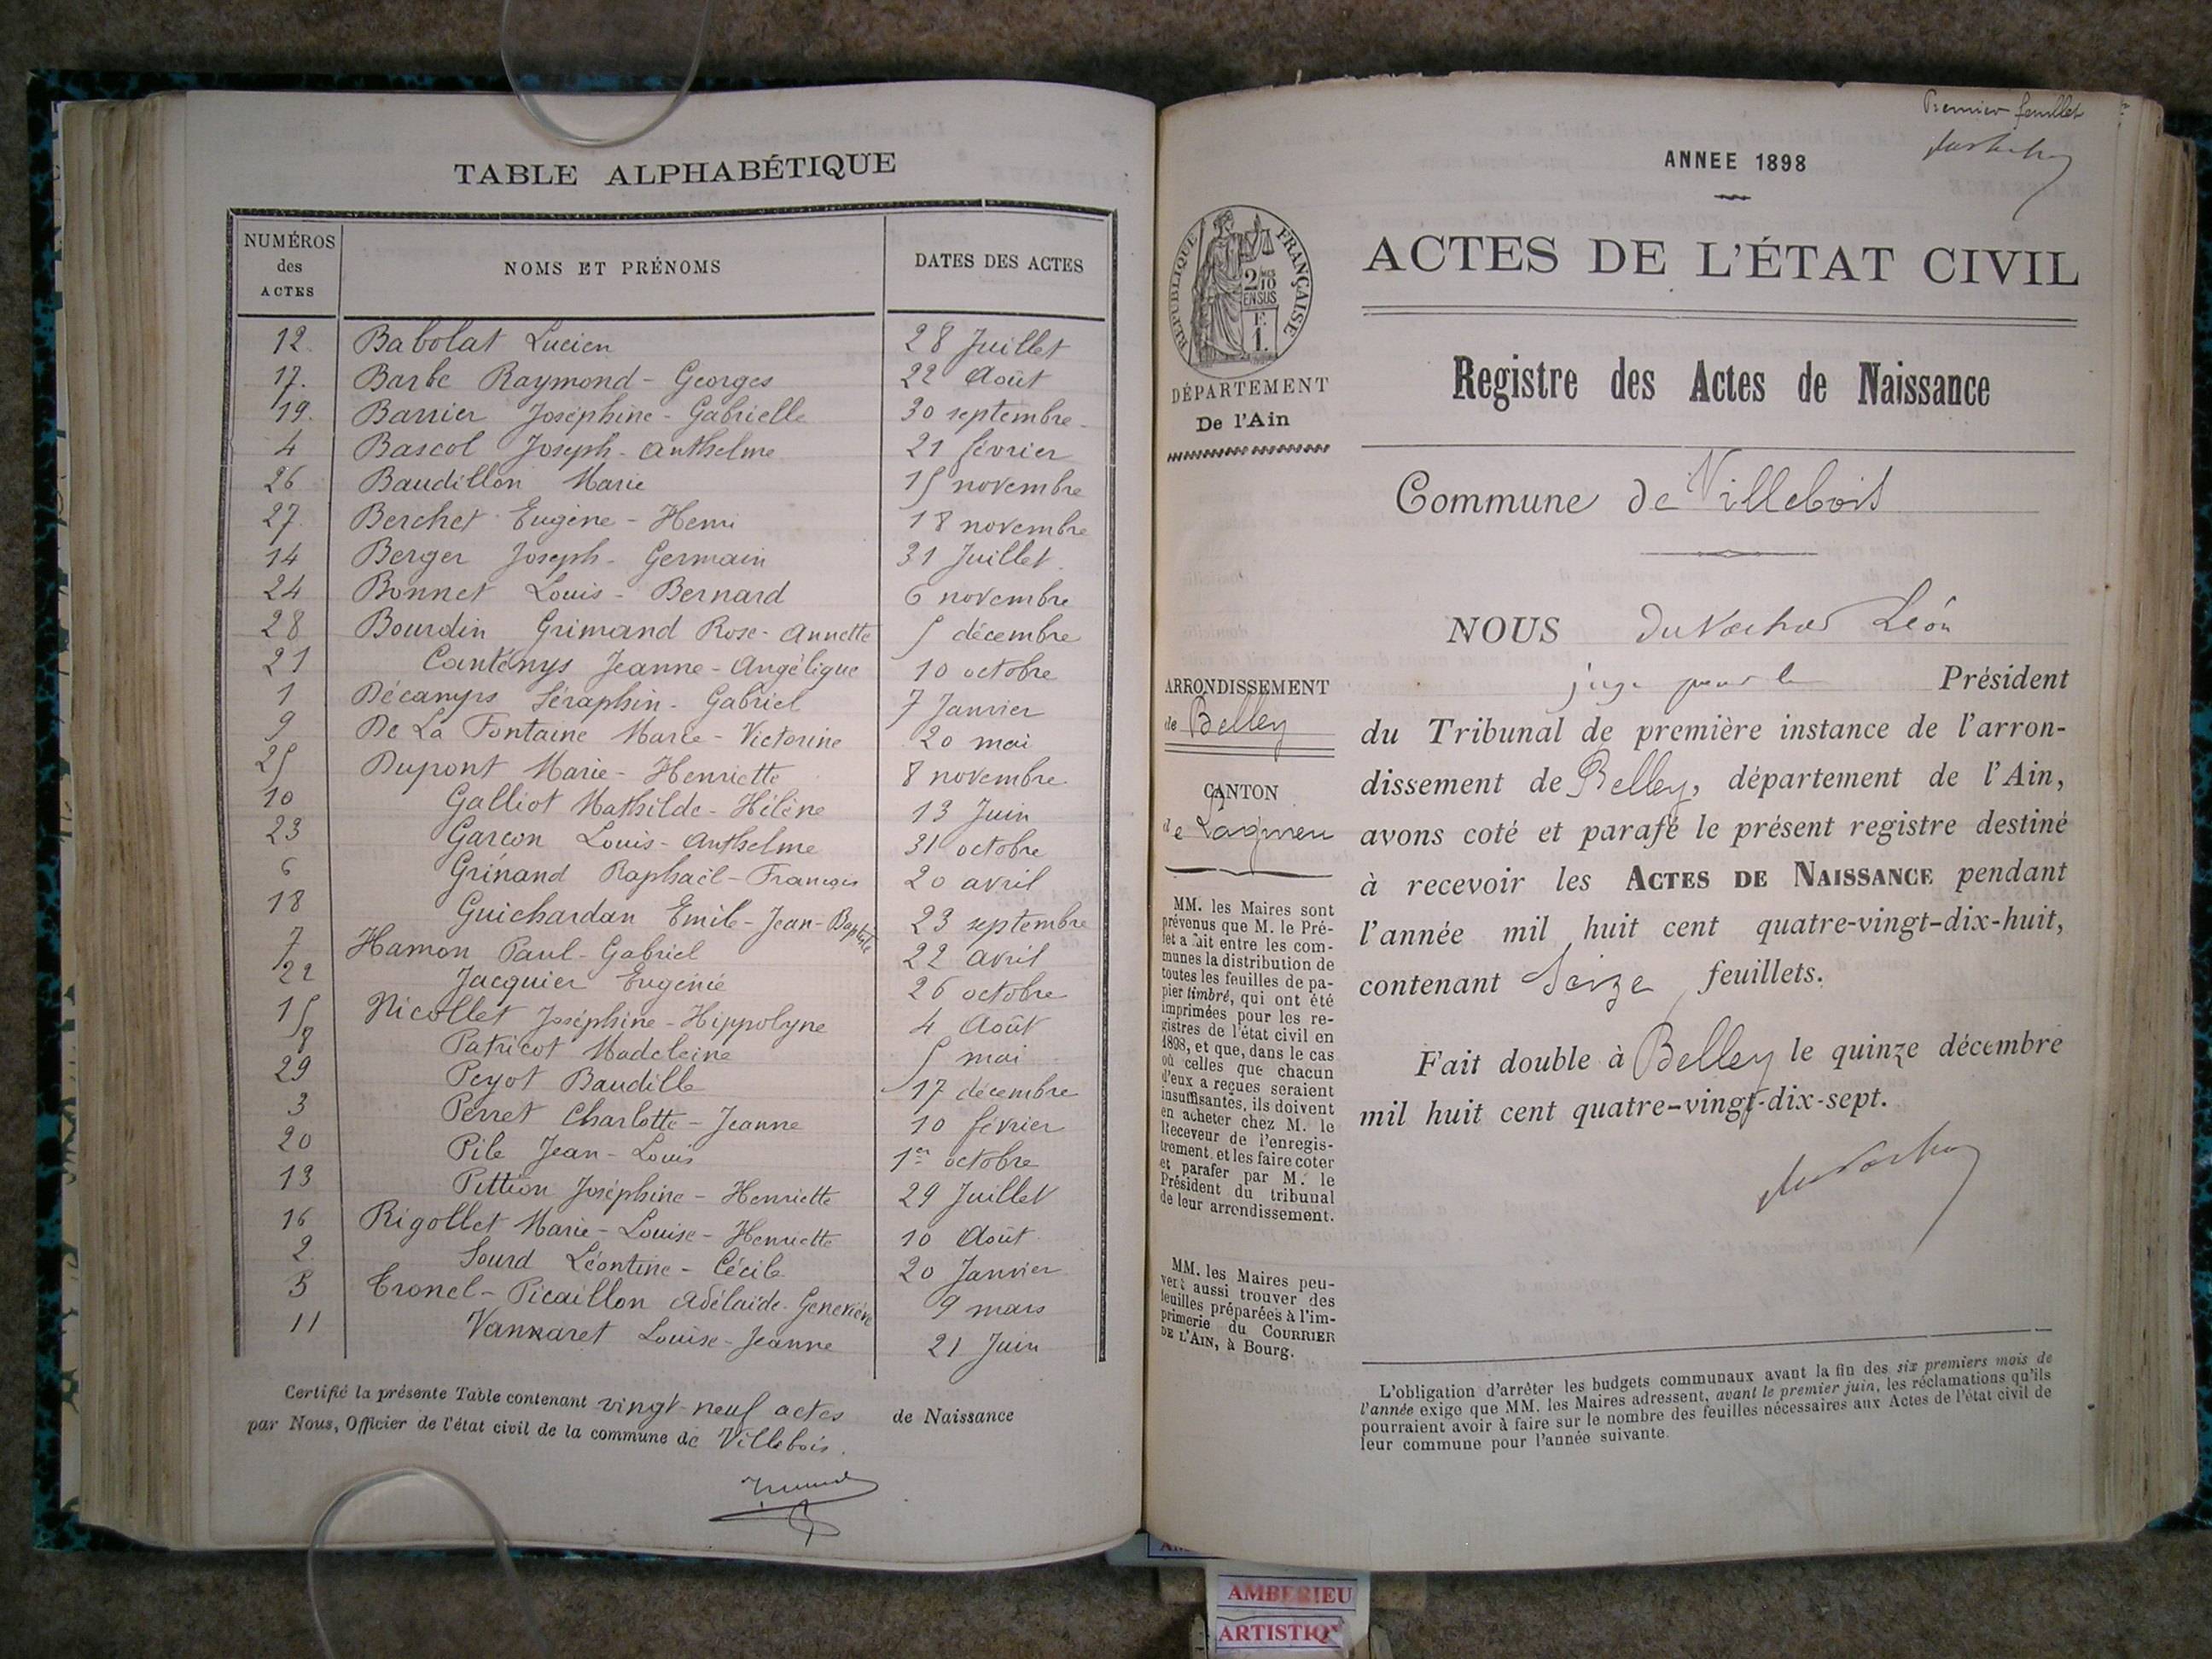 TABLE ALPHABÉTIQUE
NUMÉROS des ACTES NOMS ET PRÉNOMS DATES DES ACTES
12. Babolat Lucien 28 Juillet
17. Barbe Raymond - Georges 22 Août
19. Barrier Joséphine - Gabrielle 30 septembre
4 Bascol Joseph - Anthelme 21 février
26 Baudillon Marie 15 novembre
27. Berchet Eugène - Henri 18 novembre
14 Berger Joseph - Germain 31 Juillet
24 Bonnet Louis - Bernard 6 novembre
28 Bourdin Grimand Rose - Annette 5 décembre
21 Jeanne - Angélique 10 octobre
1 Décamps Séraphin - Gabriel 7 Janvier
9 De La Fontaine Marie - Victorine 20 mai
25 Dupont Marie - Henriette 8 novembre
10 Galliot Mathilde - Hélène 13 Juin
23 Garcon Louis - Anthelme 31 octobre
6 Grinand Raphaël - François 20 avril
18 Guichardan Emile - Jean - Baptiste 23 septembre
7 Hamon Paul - Gabriel 22 avril
22 Jacquier Eugénie 26 octobre
15 Nicollet Joséphine - Hippolyne 4 Août
8 Patricot Madeleine 5 mai
29 Peyot Baudille 17 décembre
3 Perret Charlotte - Jeanne 10 février
20 Pile Jean - Louis 1er octobre
13 Pittion Joséphine - Henriette 29 Juillet
16 Rigollet Marie - Louise - Henriette 10 Août
2 Sourd Léontine - Cécile 20 Janvier
5 Tronel - Picaillon Adélaïde - Geneviève 9 mars
11 Vannaret Louise - Jeanne 21 Juin
Certifié la présente Table contenant vingt-neuf actes de Naissance
par Nous, Officier de l'état civil de la commune de Villebois.
Premier feuillet
ANNEE 1898
RÉPUBLIQUE FRANÇAISE
2/10
EN SUS
F.
1.
ACTES DE L'ÉTAT CIVIL
Registre des Actes de Naissance
DÉPARTEMENT
De l'Ain
Commune de Villebois
NOUS Léon
juge pour le Président
du Tribunal de première instance de l'arron-
dissement de Belley, département de l'Ain,
avons coté et parafé le présent registre destiné
à recevoir les ACTES DE NAISSANCE pendant
l'année mil huit cent quatre-vingt-dix-huit,
contenant Seize feuillets.
Fait double à Belley le quinze décembre
mil huit cent quatre-vingt-dix-sept.
ARRONDISSEMENT
de Belley
CANTON
de Lagnieu
MM. les Maires sont
prévenus que M. le Pré-
fet a fait entre les com-
munes la distribution de
toutes les feuilles de pa-
pier timbré, qui ont été
imprimées pour les re-
gistres de l'état civil en
1898, et que, dans le cas
où celles que chacun
d'eux a reçues seraient
insuffisantes, ils doivent
en acheter chez M. le
Receveur de l'enregis-
trement et les faire coter
et parafer par M. le
Président du tribunal
de leur arrondissement.
MM. les Maires peu-
vent aussi trouver des
feuilles préparées à l'im-
primerie du COURRIER
DE L'AIN, à Bourg.
L'obligation d'arrêter les budgets communaux avant la fin des six premiers mois de
l'année exige que MM. les Maires adressent, avant le premier juin, les réclamations qu'ils
pourraient avoir à faire sur le nombre des feuilles nécessaires aux Actes de l'état civil de
leur commune pour l'année suivante.
AMBERIEU
ARTISTIQ